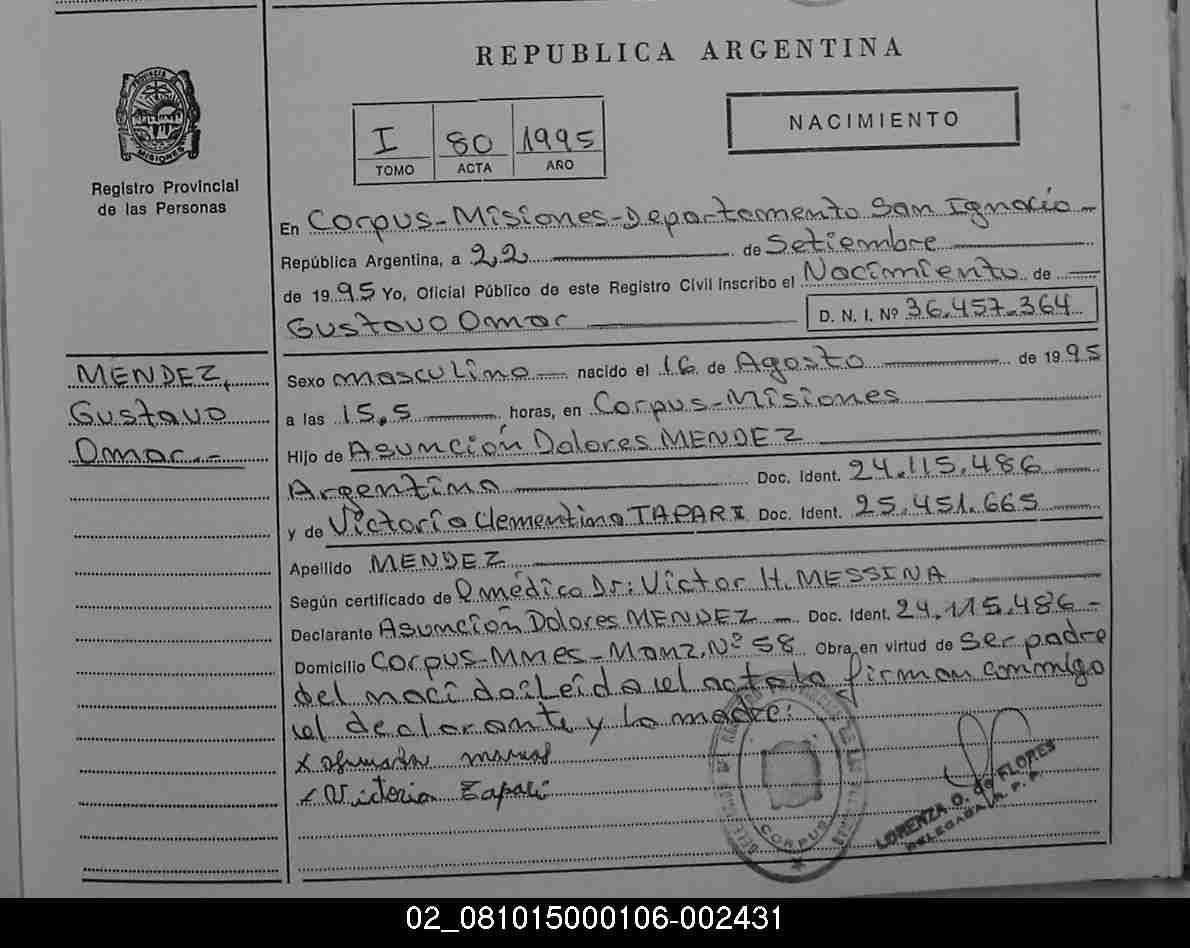 REPUBLICA ARGENTINA
PROVINCIA DE MISIONES
Registro Provincial
de las Personas
I 80 1995
TOMO ACTA AÑO
NACIMIENTO
En Corpus-Misiones-Departamento San Ignacio-
República Argentina, a 22 de Setiembre
de 1995 Yo, Oficial Público de este Registro Civil Inscribo el Nacimiento de
Gustavo Omar D. N. I. Nº 36.457.364
MENDEZ,
Gustavo
Omar.-
Sexo masculino nacido el 16 de Agosto de 1995
a las 15,5 horas, en Corpus-Misiones
Hijo de Asunción Dolores MENDEZ
Argentino Doc. Ident. 24.115.486
y de Victoria Clementina TAPARI Doc. Ident. 25.451.665
Apellido MENDEZ
Según certificado de médico Dr: Victor H. MESSINA
Declarante Asunción Dolores MENDEZ Doc. Ident. 24.115.486-
Domicilio Corpus-Mnes-Manz. Nº 58 Obra en virtud de ser padre
del nacido: Leída el acta la firman conmigo
el declarante y la madre:
x
x Victoria
CORPUS
LORENZA O. de FLORES
DELEGADA R. P. P.
02_081015000106-002431